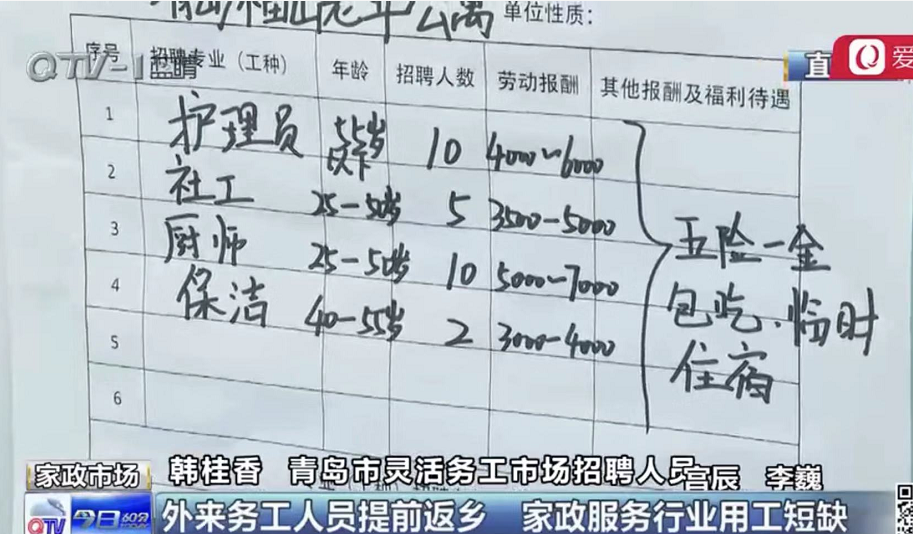 老年公寓 单位性质：
序号 招聘专业（工种） 年龄 招聘人数 劳动报酬 其他报酬及福利待遇
QTV-1 蓝睛
直
爱
1 护理员 55岁以下 10 4000~6000
2 社工 25-50岁 5 3500-5000
3 厨师 25-50岁 10 5000-7000
4 保洁 40-55岁 2 3000-4000
5
6
五险一金
包吃、临时
住宿
家政市场 韩桂香 青岛市灵活务工市场招聘人员 宫辰 李巍
QTV 今日60分 外来务工人员提前返乡 家政服务行业用工短缺